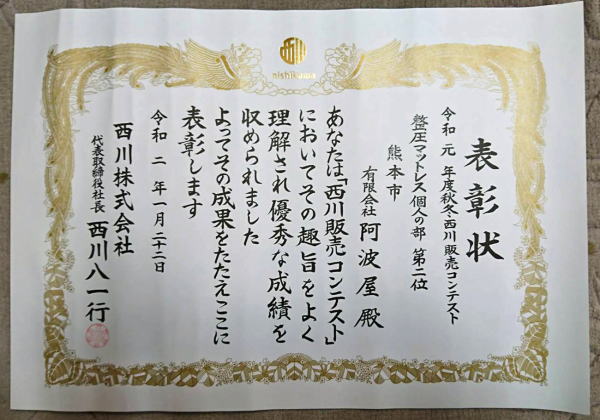 nishikawa
表彰状
令和 元 年度秋冬・西川販売コンテスト
整圧マットレス個人の部 第二位
熊本市
有限会社 阿波屋 殿
あなたは「西川販売コンテスト」
においてその趣旨をよく
理解され優秀な成績を
収められました
よってその成果をたたえここに
表彰します
令和 二 年 一 月 二十二 日
西川株式会社
代表取締役社長 西川八一行